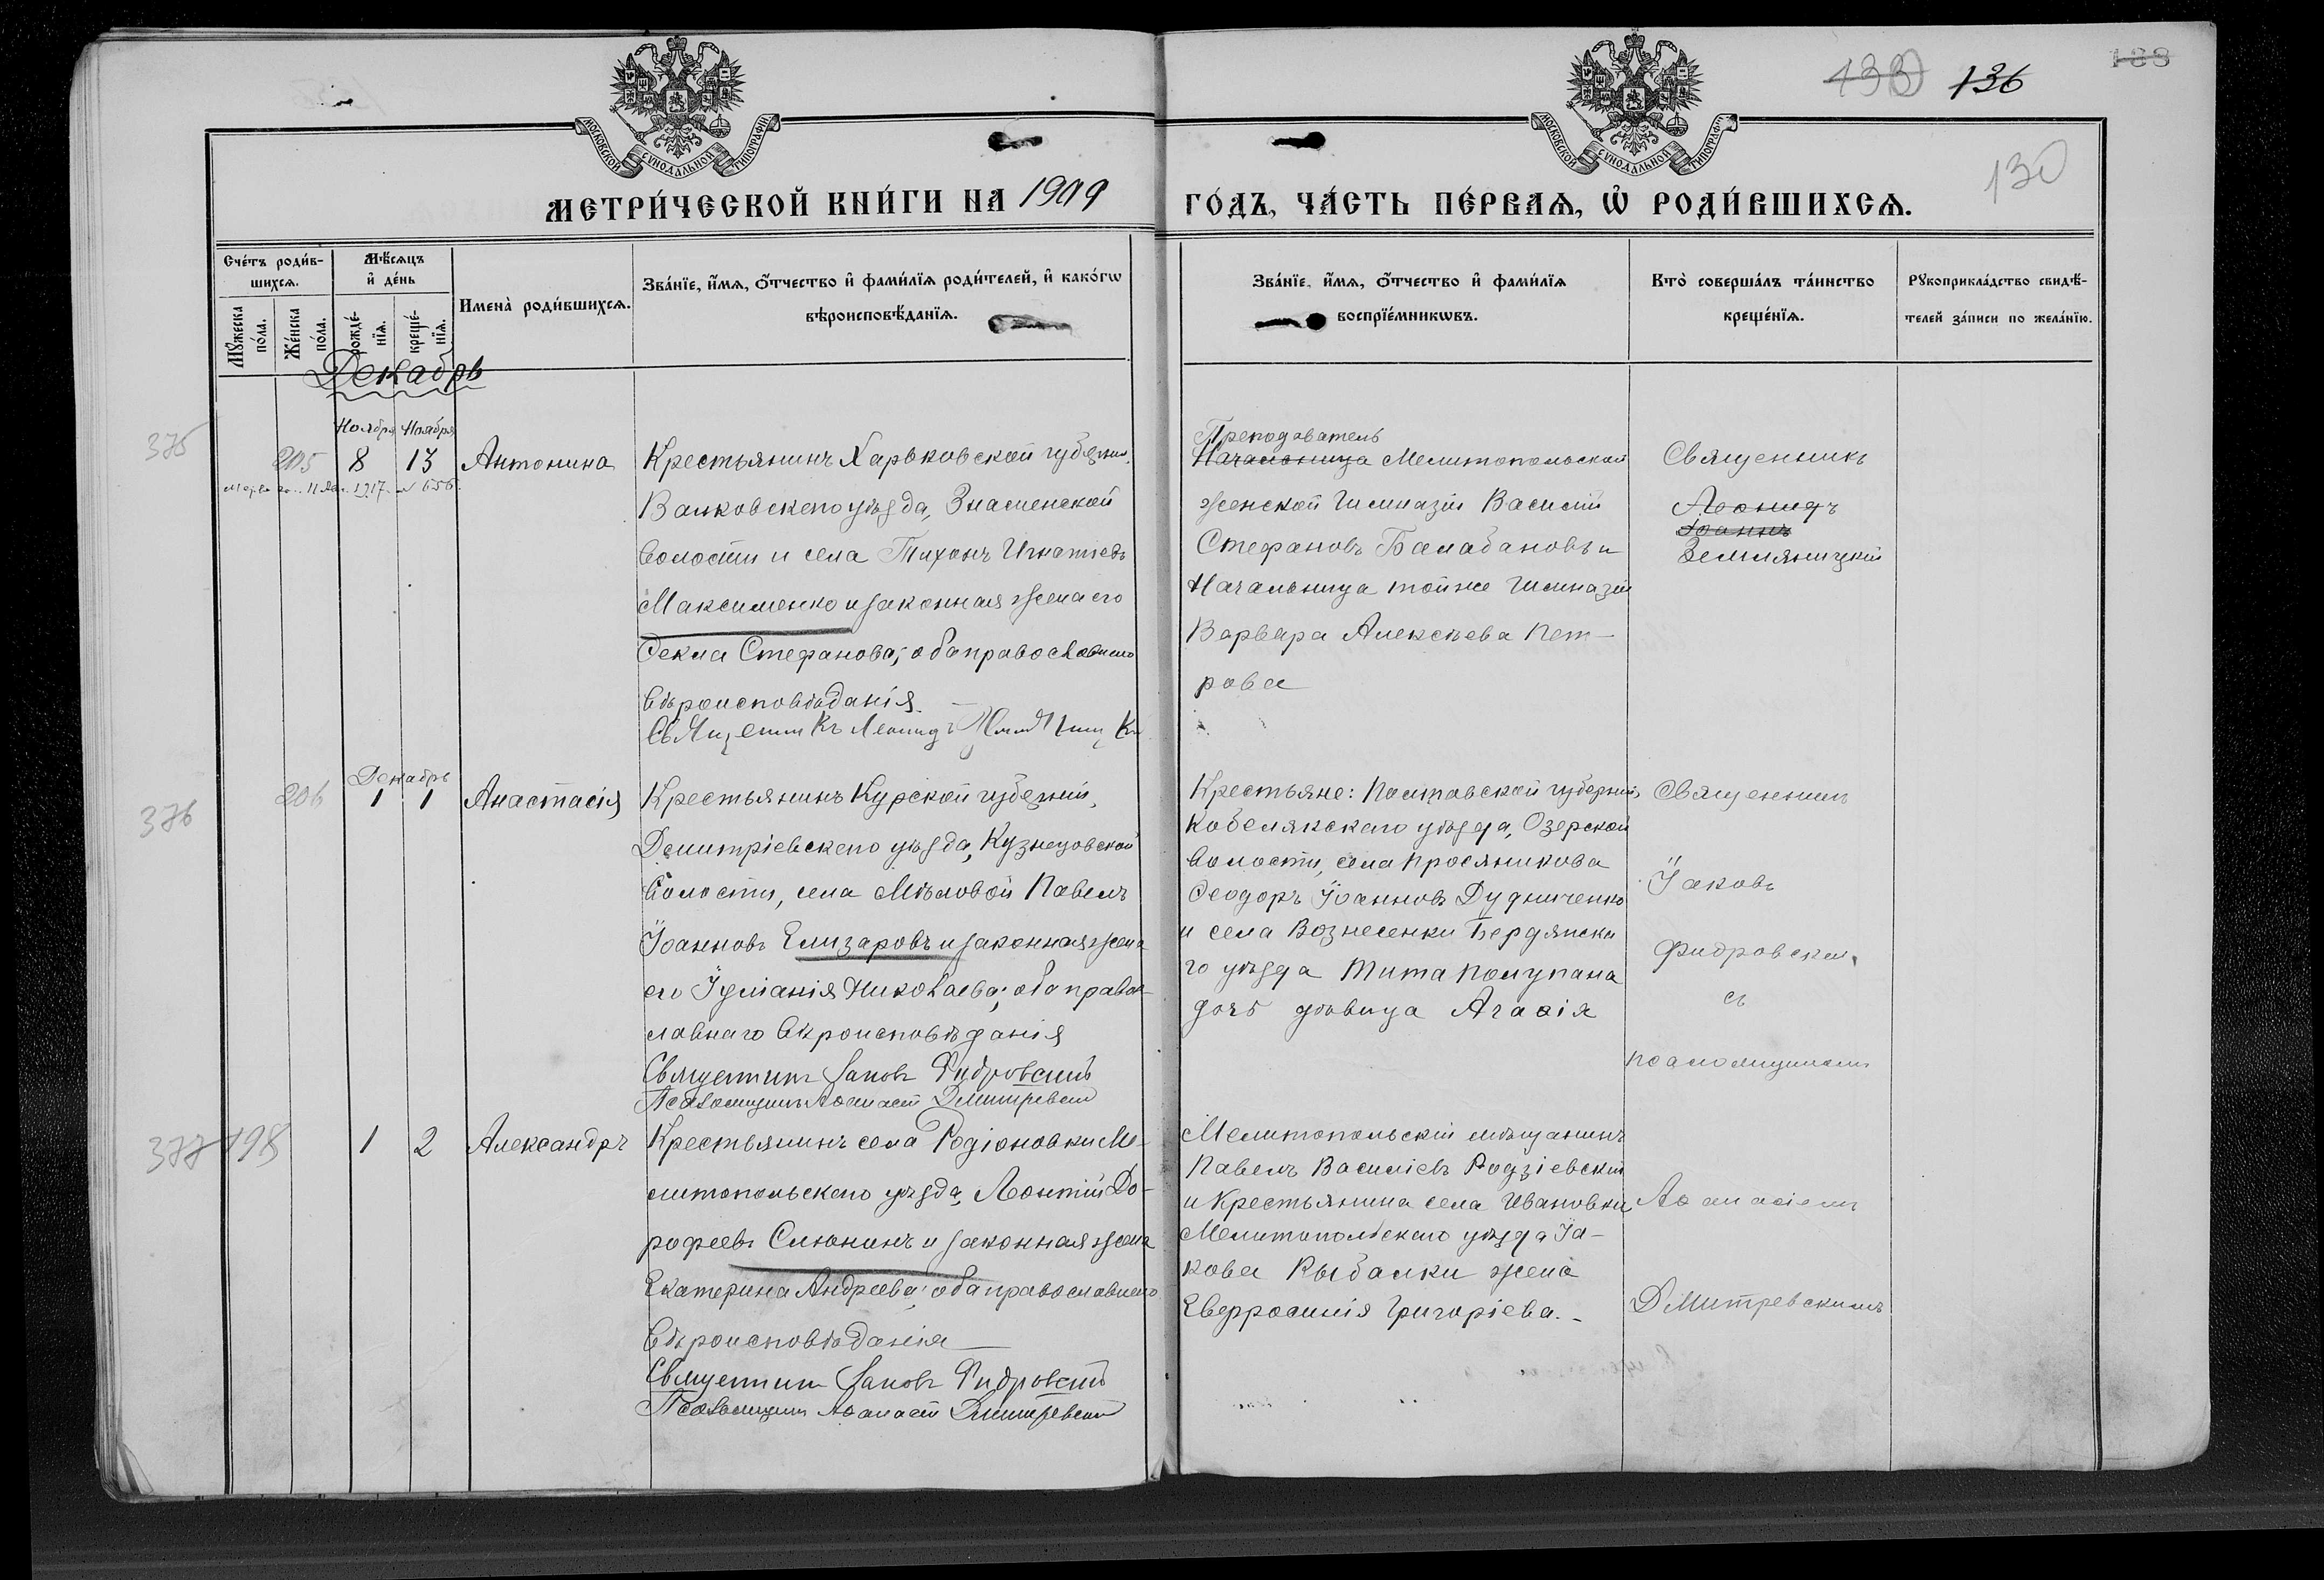 136
188
130
МОСКОВСКОЙ СУНОДАЛЬНОЙ ТИПОГРАФІИ
МОСКОВСКОЙ СУНОДАЛЬНОЙ ТИПОГРАФІИ
МЕТРИ́ЧЕСКОЙ КНИ́ГИ НА 1909
ГО́ДЪ, ЧА́СТЬ ПЕ́РВАѦ, Ѡ҆ РОДИ́ВШИХСѦ.
Сче́тъ роди́в-
шихсѧ.
Мѣ́сѧцъ
и҆ де́нь
Мꙋ́жеска
по́ла.
Же́нска
по́ла.
рожде́-
нїѧ.
креще́-
нїѧ.
Имена̀ роди́вшихсѧ.
Зва́нїе, и҆́мѧ, ѻ҆́тчество и҆ фами́лїѧ роди́телей, и҆ како́гѡ
вѣроисповѣ́данїѧ.
Зва́нїе, и҆́мѧ, ѻ҆́тчество и҆ фами́лїѧ
воспрїе́мникѡвъ.
Кто̀ соверша́лъ та́инство
креще́нїѧ.
Рꙋкоприкла́дство свидѣ́-
телей за́писи по жела́нїю.
Декабрь
Ноября Ноября
375
205 8 13 Антонина
1917 № 656
Крестьянинъ Харьковской губерніи,
Валковскаго уѣзда, Знаменской
волости и села Тихонъ Игнатіевъ
Максименко и законная жена его
Ѳекла Стефанова; оба православнаго
вѣроисповѣданія.
Священникъ Леонидъ
Преподаватель
Начальница Мелитопольской
женской гимназіи Василій
Стефановъ Балабановъ и
Начальница той же гимназіи
Варвара Алексѣева Пет-
рова
Священникъ
Леонидъ
Іоаннъ
Земляницкій
Декабрь
376
206 1 1 Анастасія
Крестьянинъ Курской губерніи,
Дмитріевскаго уѣзда, Кузнецовской
волости, села Мѣловой Павелъ
Іоанновъ Елизаровъ и законная жена
его Іуліанія Николаева; оба правос-
лавнаго вѣроисповѣданія
Священникъ Іаковъ Фидровскій
Псаломщикъ Аѳанасій Дмитревскій
Крестьяне: Полтавской губерніи,
Кобелякскаго уѣзда, Озерской
волости, села Просяникова
Ѳеодоръ Іоанновъ Дудниченко
и села Вознесенки Бердянска
го уѣзда Тита Полупана
дочь дѣвица Агаѳія
Священникъ
Іаковъ
Фидровскій
съ
псаломщикомъ
377 198 1 2 Александръ
Крестьянинъ села Родіоновки Ме-
литопольскаго уѣзда, Леонтій До-
роѳеевъ Слюнинъ и законная жена
Екатерина Андреева; оба православнаго
вѣроисповѣданія
Священникъ Іаковъ Фидровскій
Псаломщикъ Аѳанасій Дмитревскій
Мелитопольскій мѣщанинъ
Павелъ Василіевъ Родзіевскій
и Крестьянина села Ивановки
Мелитопольскаго уѣзда Іа-
кова Рыбалки жена
Евфросинія Григоріева.
Аѳанасіемъ
Дмитревскимъ